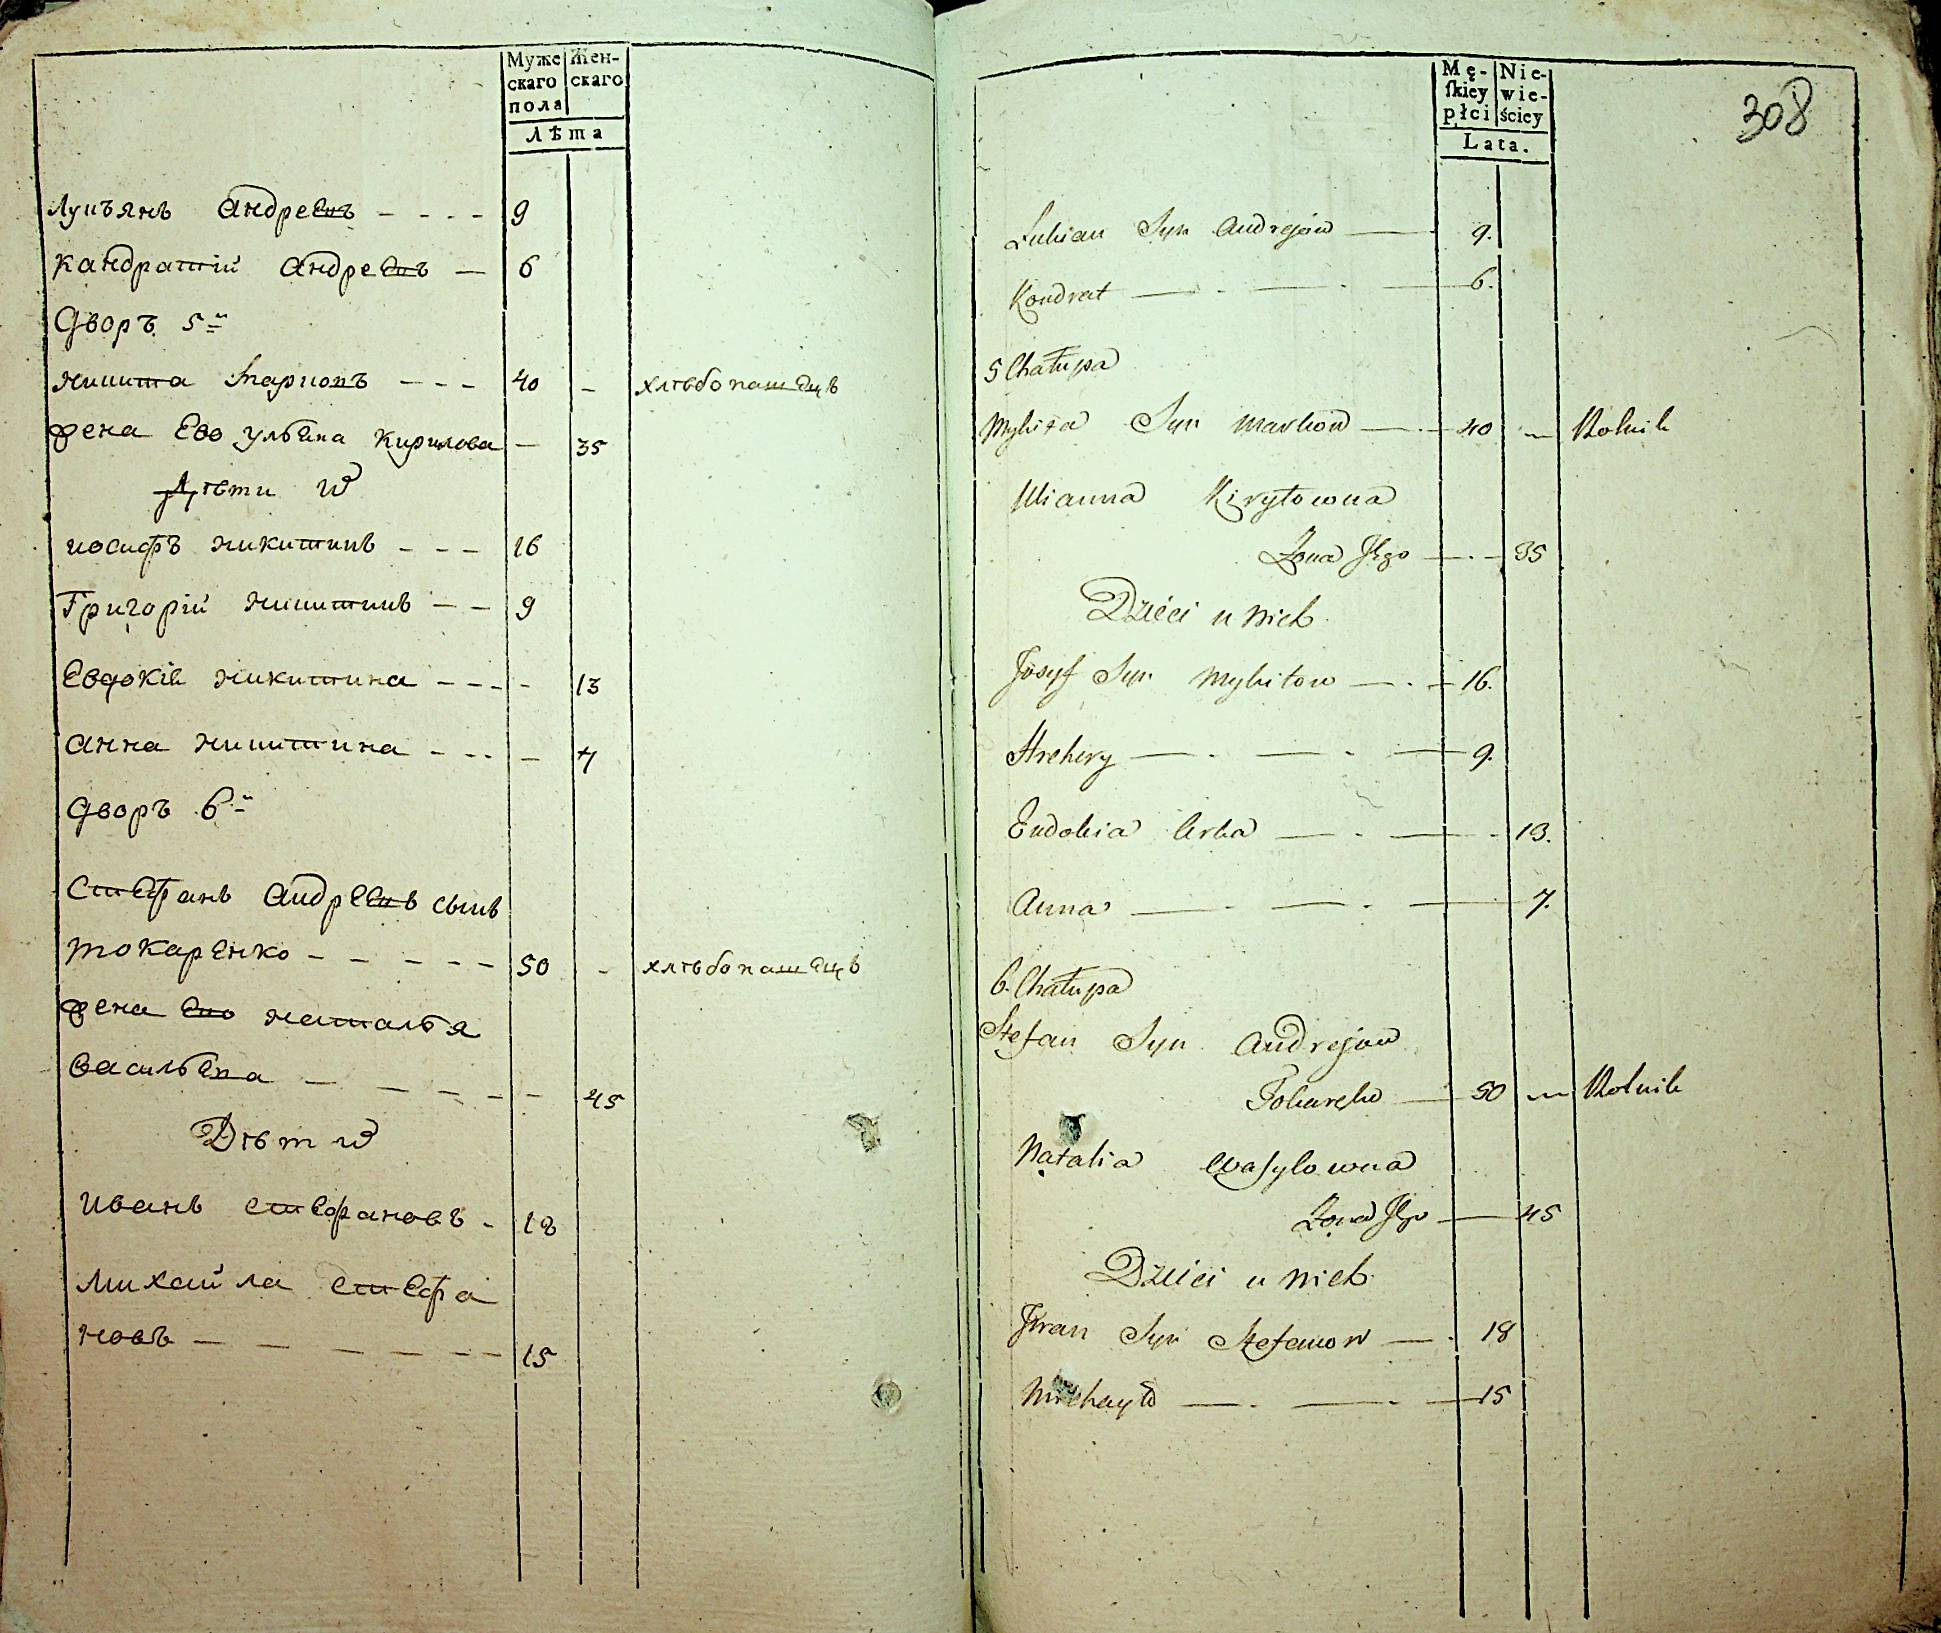 Муже
скаго
пола
Жен-
скаго
Лѣта
Лукьянъ Андреевъ - - - - 9
Кандратій Андреевъ — 6
Дворъ 5й
Никита Марковъ - - - 40 - хлѣбопашецъ
Жена Его Ульяна Кирилова - 35
Дѣти
Иосифъ Никитинъ - - - 16
Григорій Никитинъ - - 9
Евдокія Никитина - - - - 13
Анна Никитина - - - - 7
Дворъ 6й
Стефанъ Андреевъ сынъ
Токаренко - - - - - 50 - хлѣбопашецъ
Жена Его Наталья
Васильева - - - - - - 45
Дѣти
Иванъ Стефановъ - 18
Михайла Стефа
новъ - - - - - - 15
Mę-
ſkiey
płci
Nie-
wie-
ściey
Lata.
308
Łukian Syn Andrejów — 9.
Kondrat — . — . — 6.
5 Chałupa
Mykita Syn Markow — . — 40 — Rolnik
Ulianna Kiryłowna
Żona Jego — . — 35
Dzieci u Nich
Josyf Syn Mykitow — . — 16.
Hrehory — . — . — 9.
Eudokia Corka — . — . 13.
Anna — . — . — 7.
6. Chałupa
Stefan Syn Andrejow
Tokaręko — 50 — Rolnik
Natalia Wasylowna
Żona Jego — 45
Dzieci u Nich
Iwan Syn Stefanow — . 18
Michayło — . — . — 15